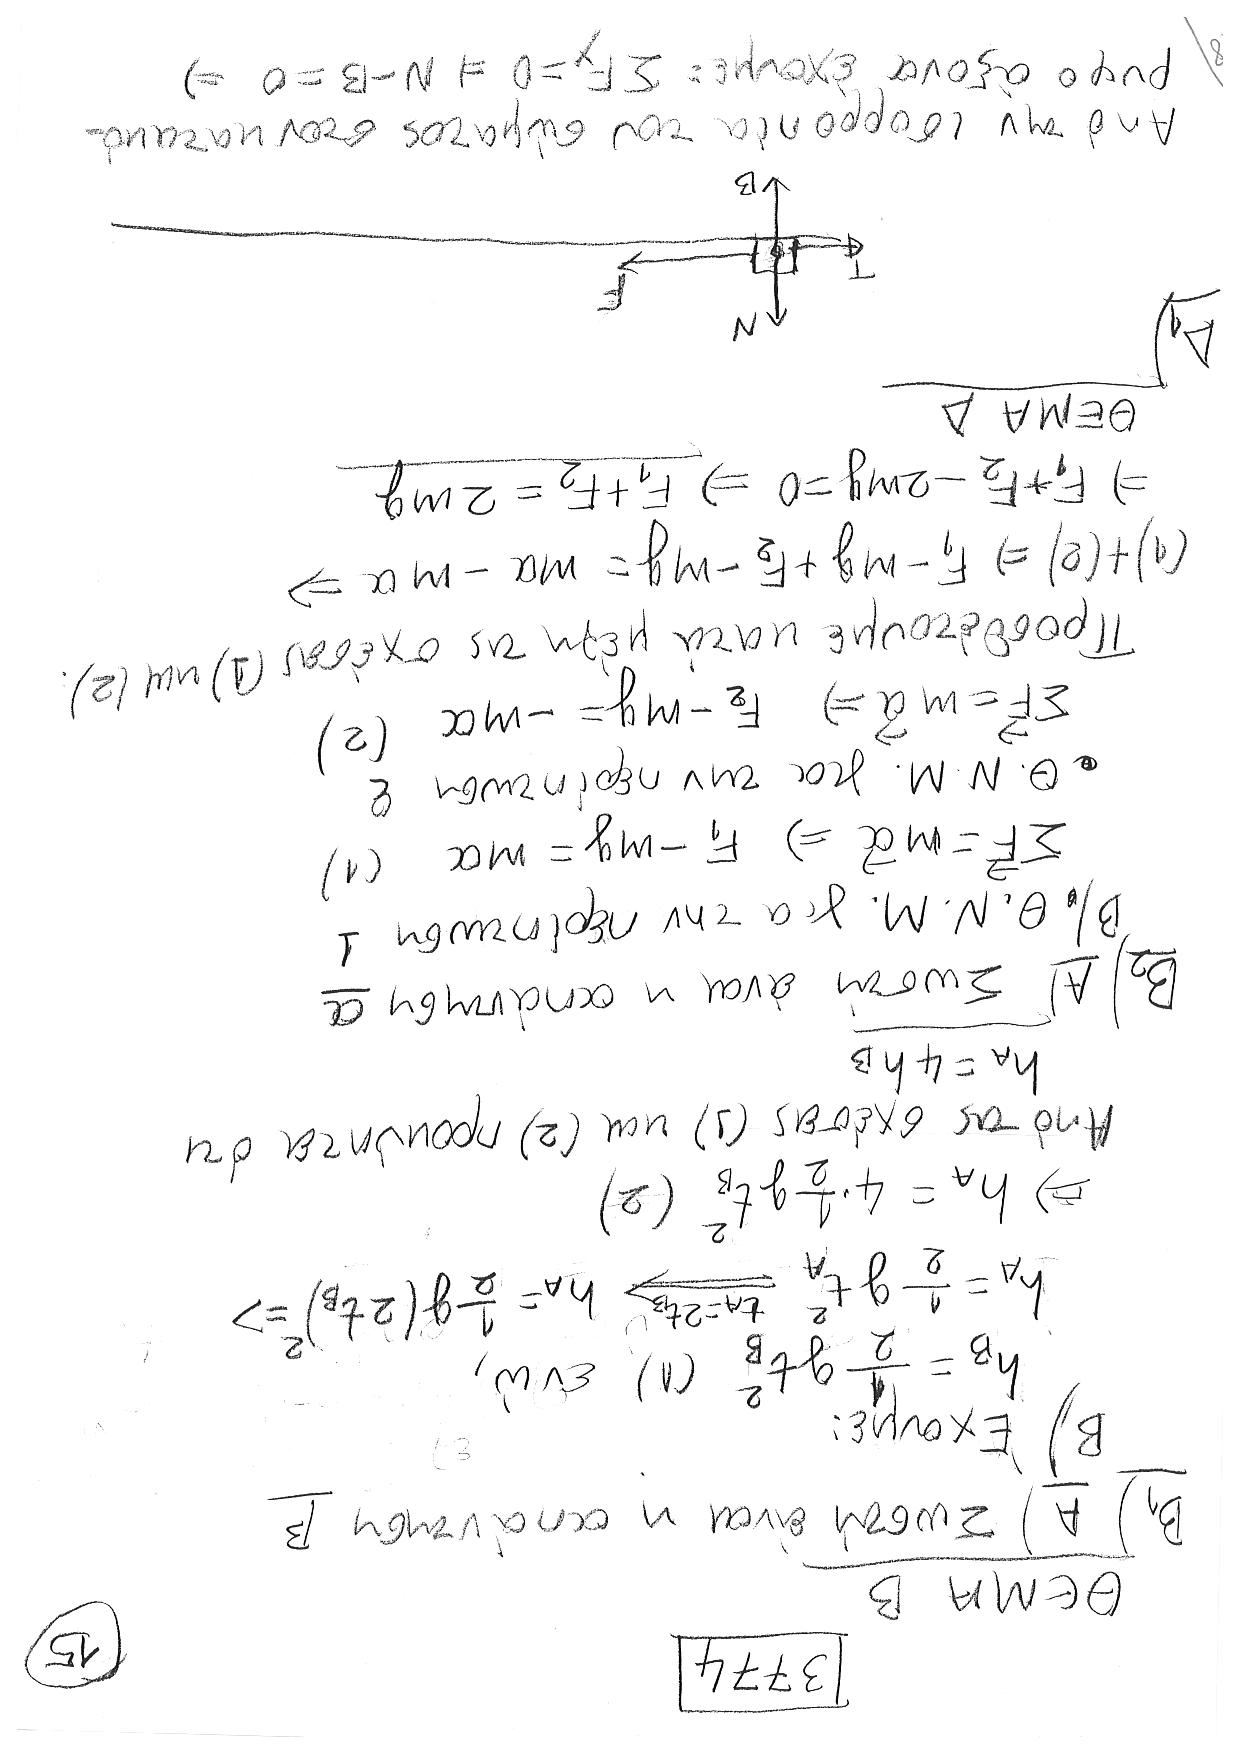 3774
15
ΘΕΜΑ Β
Β1) Α) Σωστή είναι η απάντηση Β
Β) Έχουμε:
hB = 1/2 g tB² (1) ενώ,
hA = 1/2 g tA² ⟹ tA=2tB hA = 1/2 g (2tB)² =>
=> hA = 4·1/2 g tB² (2)
Από τις σχέσεις (1) και (2) προκύπτει ότι
hA = 4hB
Β2) Α) Σωστή είναι η απάντηση α
Β) • Θ.Ν.Μ. για την περίπτωση 1
ΣF⃗ = mα⃗ => F1 - mg = mα (1)
• Θ.Ν.Μ. για την περίπτωση 2
ΣF⃗ = mα⃗ => F2 - mg = -mα (2)
Προσθέτουμε κατά μέρη τις σχέσεις (1) και (2):
(1)+(2) => F1 - mg + F2 - mg = mα - mα =>
=> F1 + F2 - 2mg = 0 => F1 + F2 = 2mg
ΘΕΜΑ Δ
Δ1)
N
F
T
B
Από την ισορροπία του σώματος στον κατακό-
ρυφο άξονα έχουμε: ΣFy = 0 => N - B = 0 =>